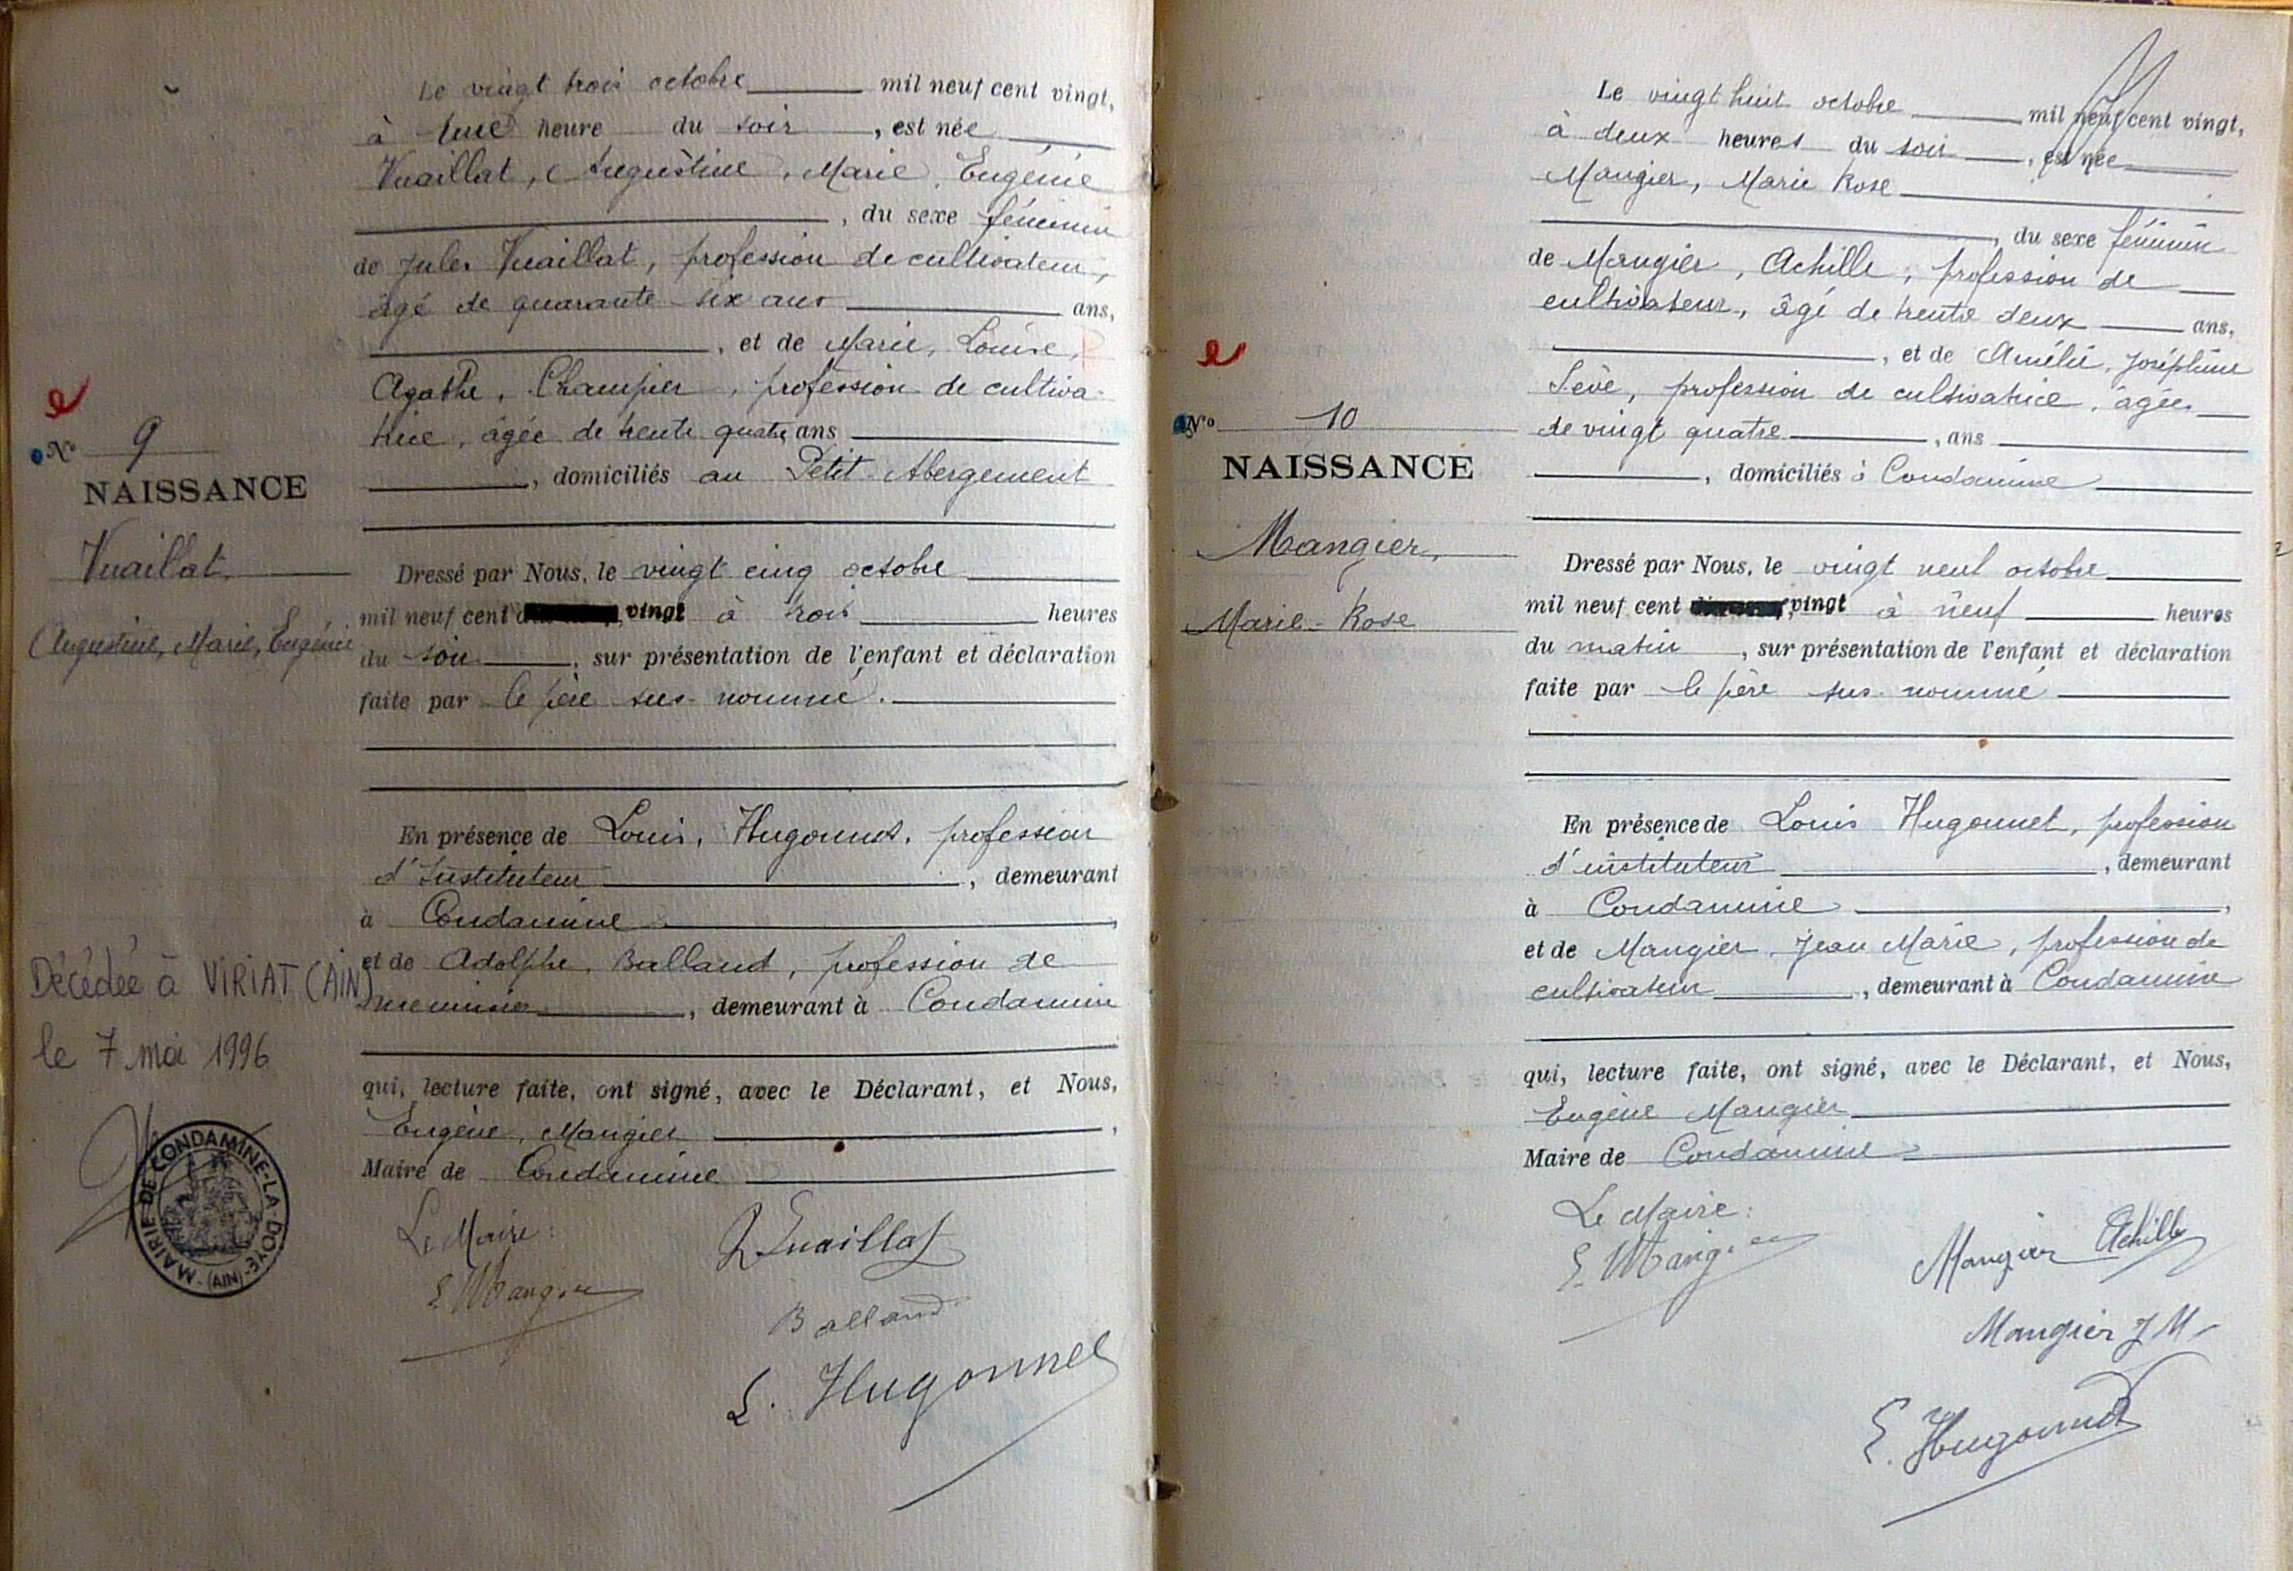 Le vingt trois octobre mil neuf cent vingt,
à une heure du soir, est née
Vuaillat, Augustine, Marie, Eugénie
, du sexe féminin
de Jules Vuaillat, profession de cultivateur,
âgé de quarante-six ans ans,
, et de Marie, Louise,
Agathe, Champier, profession de cultiva-
trice, âgée de trente quatre ans
, domiciliés au Petit-Abergement
e
No 9
NAISSANCE
Vuaillat
Augustine, Marie, Eugénie
Dressé par Nous, le vingt cinq octobre
mil neuf cent vingt à trois heures
du soir, sur présentation de l'enfant et déclaration
faite par le père sus-nommé.
En présence de Louis, Hugonnet, profession
d'Instituteur, demeurant
à Condamine,
et de Adolphe, Balland, profession de
menuisier, demeurant à Condamine
Décédée à VIRIAT (AIN)
le 7 mai 1996
MAIRIE DE CONDAMINE-LA-DOYE (AIN)
qui, lecture faite, ont signé, avec le Déclarant, et Nous,
Eugène, Mangier,
Maire de Condamine
Le Maire:
E. Mangier
Vuaillat
Balland
L. Hugonnet
Le vingt huit octobre mil neuf cent vingt,
à deux heures du soir, est née
Mangier, Marie Rose
, du sexe féminin
de Mangier, Achille, profession de
cultivateur, âgé de trente deux ans,
, et de Amélie, Joséphine
Sève, profession de cultivatrice, âgée
de vingt quatre, ans
, domiciliés à Condamine
e
No 10
NAISSANCE
Mangier,
Marie-Rose
Dressé par Nous, le vingt neuf octobre
mil neuf cent vingt à neuf heures
du matin, sur présentation de l'enfant et déclaration
faite par le père sus-nommé
En présence de Louis Hugonnet, profession
d'instituteur, demeurant
à Condamine,
et de Mangier Jean Marie, profession de
cultivateur, demeurant à Condamine
qui, lecture faite, ont signé, avec le Déclarant, et Nous,
Eugène Mangier
Maire de Condamine
Le Maire:
E. Mangier
Mangier Achille
Mangier J M
L. Hugonnet